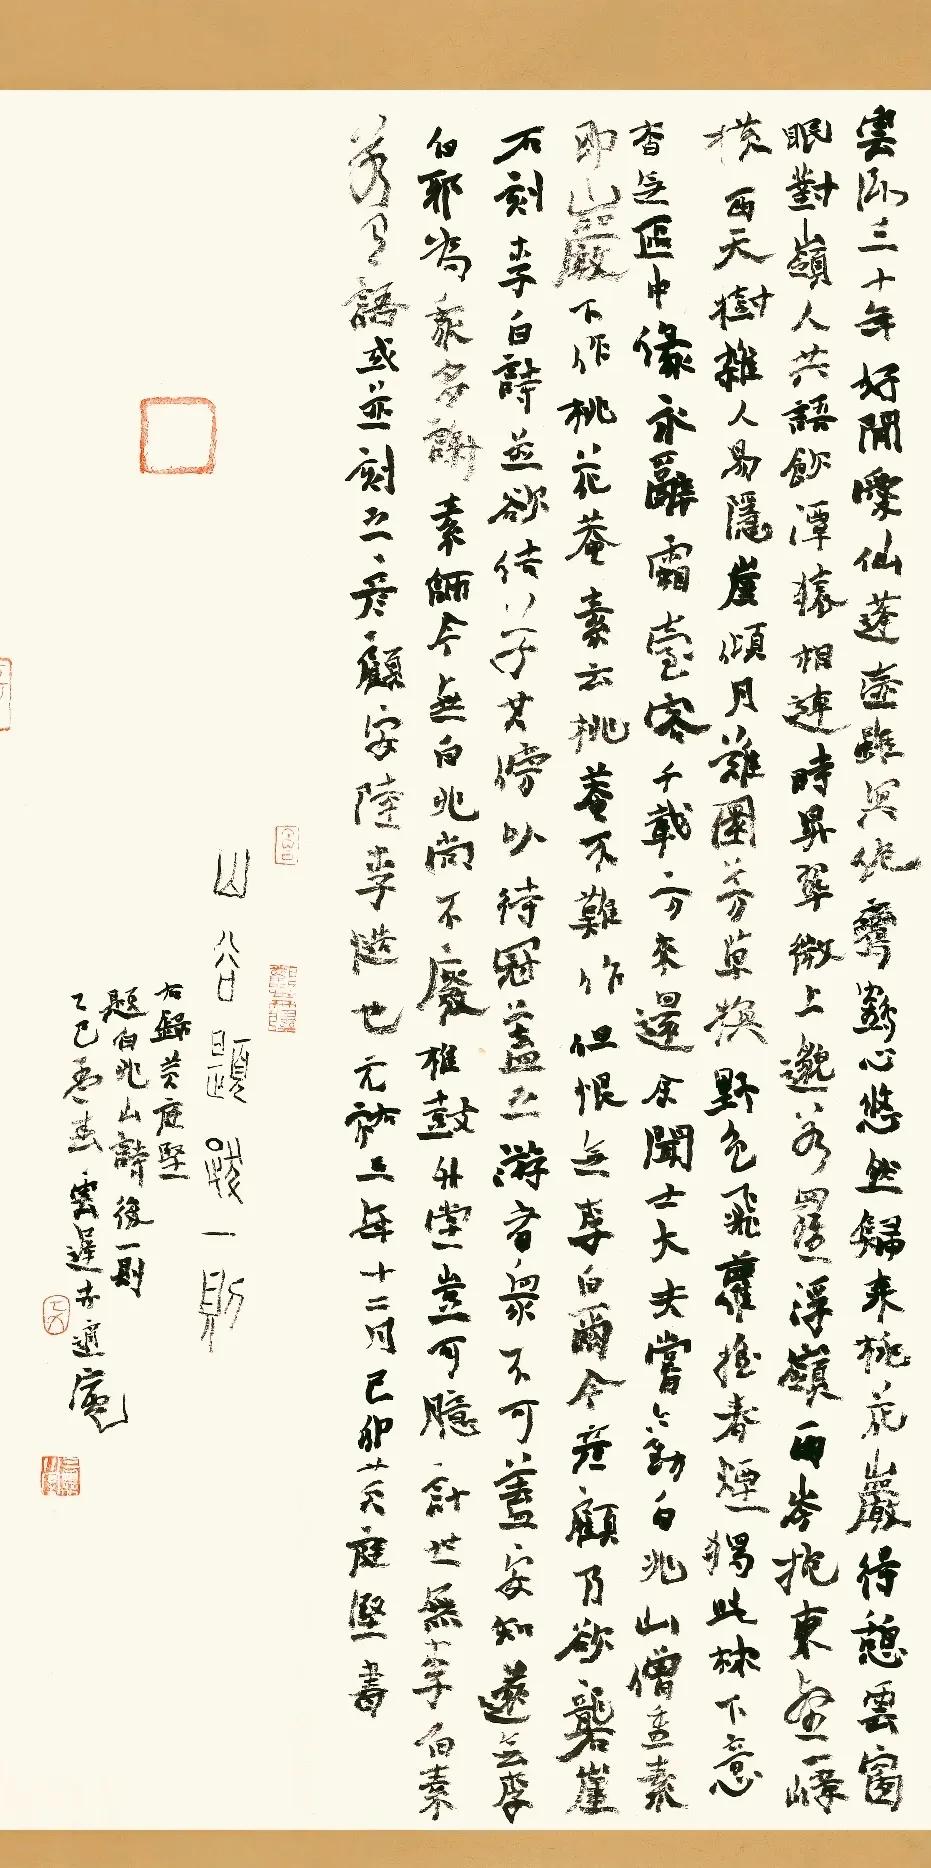 雲臥三十年好閒愛仙蓬壺雖冥絕鸞鶴心悠然歸來桃花巖得憩雲窗
眠對嶺人共語飲潭猿相連時昇翠微上邈若羅浮巔兩岑抱東壑一嶂
橫西天樹雜人易隱崖傾月難圓芳草換野色飛蘿搖春煙獨此林下意
杳無區中緣永辭霜臺客千載方來還余聞士大夫嘗勸白兆山僧重素
即山巖下作桃花菴素云桃菴不難作但恨無李白爾今彥顧乃欲礱崖
石刻李白詩並欲結茅其傍以待冠蓋之游者眾不可蓋安知遂無李
白耶為我多謝素師今無白兆尚不廢椎鼓升堂豈可臆計世無李白素
若有語或並刻之彥顧安陸李愷也元祐三年十二月己卯黃庭堅書
山谷題跋一則
右錄黃庭堅
題白兆山詩後一則
乙巳孟春雲遲適庵